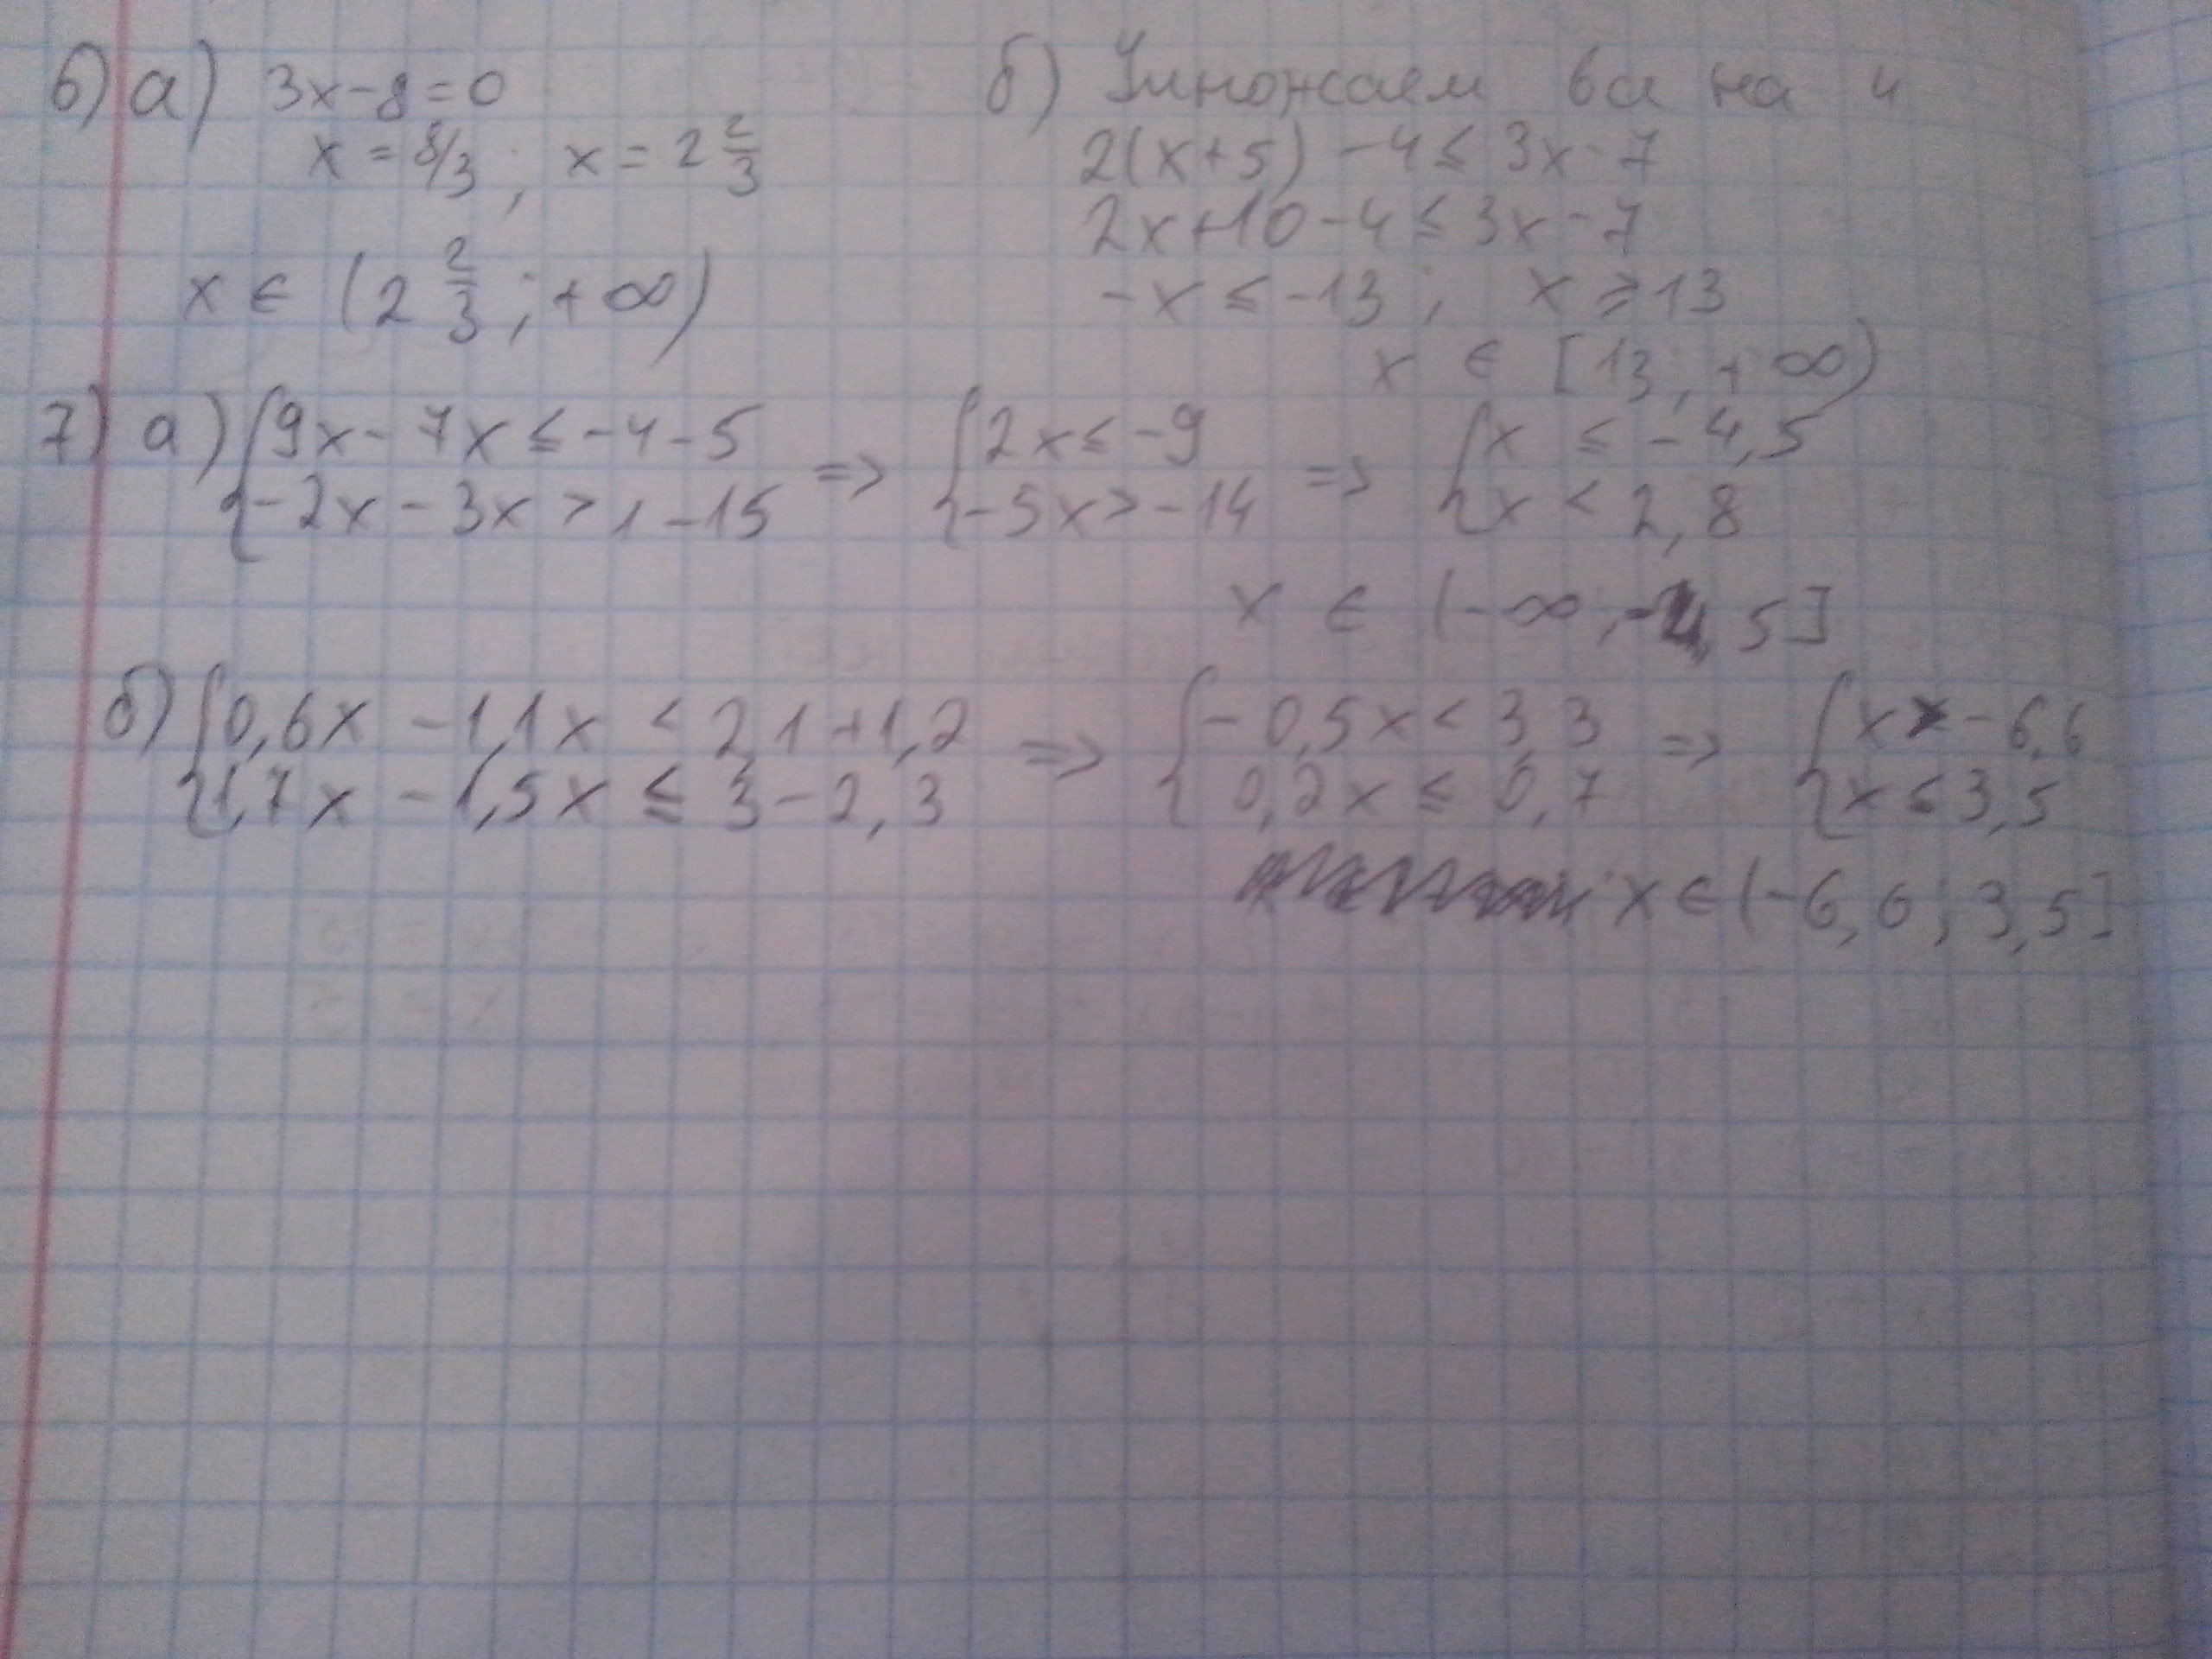 6) а) 3x-8=0
x = 8/3 ; x = 2 2/3
x ∈ (2 2/3 ; +∞)
б) Умножаем все на 4
2(x+5) -4 ≤ 3x-7
2x+10-4 ≤ 3x-7
-x ≤ -13 ; x ≥ 13
x ∈ [13 ; +∞)
7) а) { 9x - 7x ≤ -4-5 => { 2x ≤ -9 => { x ≤ -4,5
-2x - 3x > 1 - 15 -5x > -14 x < 2,8
x ∈ (-∞ ; -4,5]
б) { 0,6x - 1,1x < 2,1+1,2 => { -0,5x < 3,3 => { x > -6,6
1,7x - 1,5x ≤ 3-2,3 0,2x ≤ 0,7 x ≤ 3,5
x ∈ (-6,6 ; 3,5]